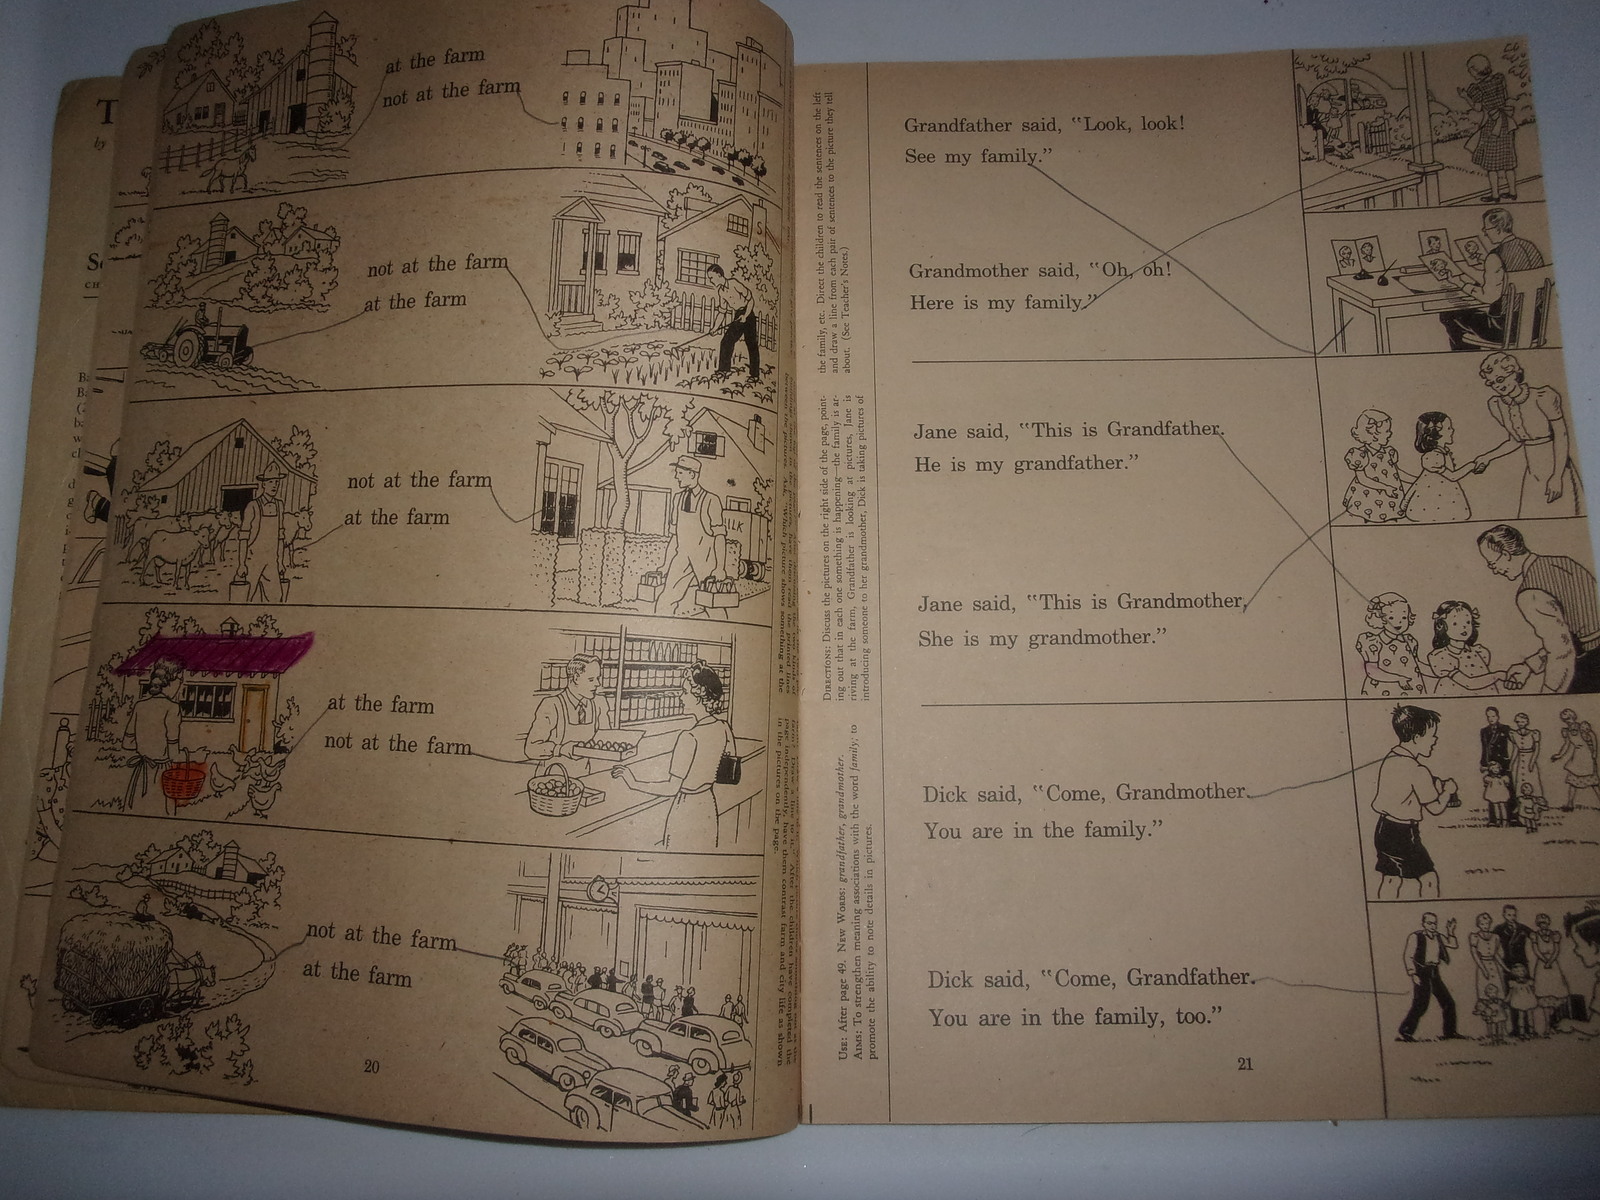 at the farm
not at the farm
not at the farm
at the farm
not at the farm
at the farm
at the farm
not at the farm
not at the farm
at the farm
20
Directions: Discuss the pictures on the right side of the page, point-
ing out that in each one something is happening—the family is ar-
riving at the farm, Grandfather is looking at pictures, Jane is
introducing someone to her grandmother, Dick is taking pictures of
the family, etc. Direct the children to read the sentences on the left
and draw a line from each pair of sentences to the picture they tell
about. (See Teacher's Notes.)
Use: After page 49. New Words: grandfather, grandmother.
Aims: To strengthen meaning associations with the word family; to
promote the ability to note details in pictures.
Grandfather said, "Look, look!
See my family."
Grandmother said, "Oh, oh!
Here is my family."
Jane said, "This is Grandfather.
He is my grandfather."
Jane said, "This is Grandmother.
She is my grandmother."
Dick said, "Come, Grandmother.
You are in the family."
Dick said, "Come, Grandfather.
You are in the family, too."
21